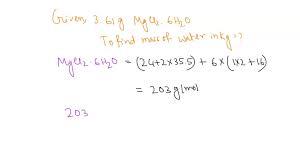 Given 3.61g MgCl2.6H2O
To find mass of water in kg=?
MgCl2.6H2O = (24+2x35.5) + 6x(1x2+16)
= 203 g/mol
203